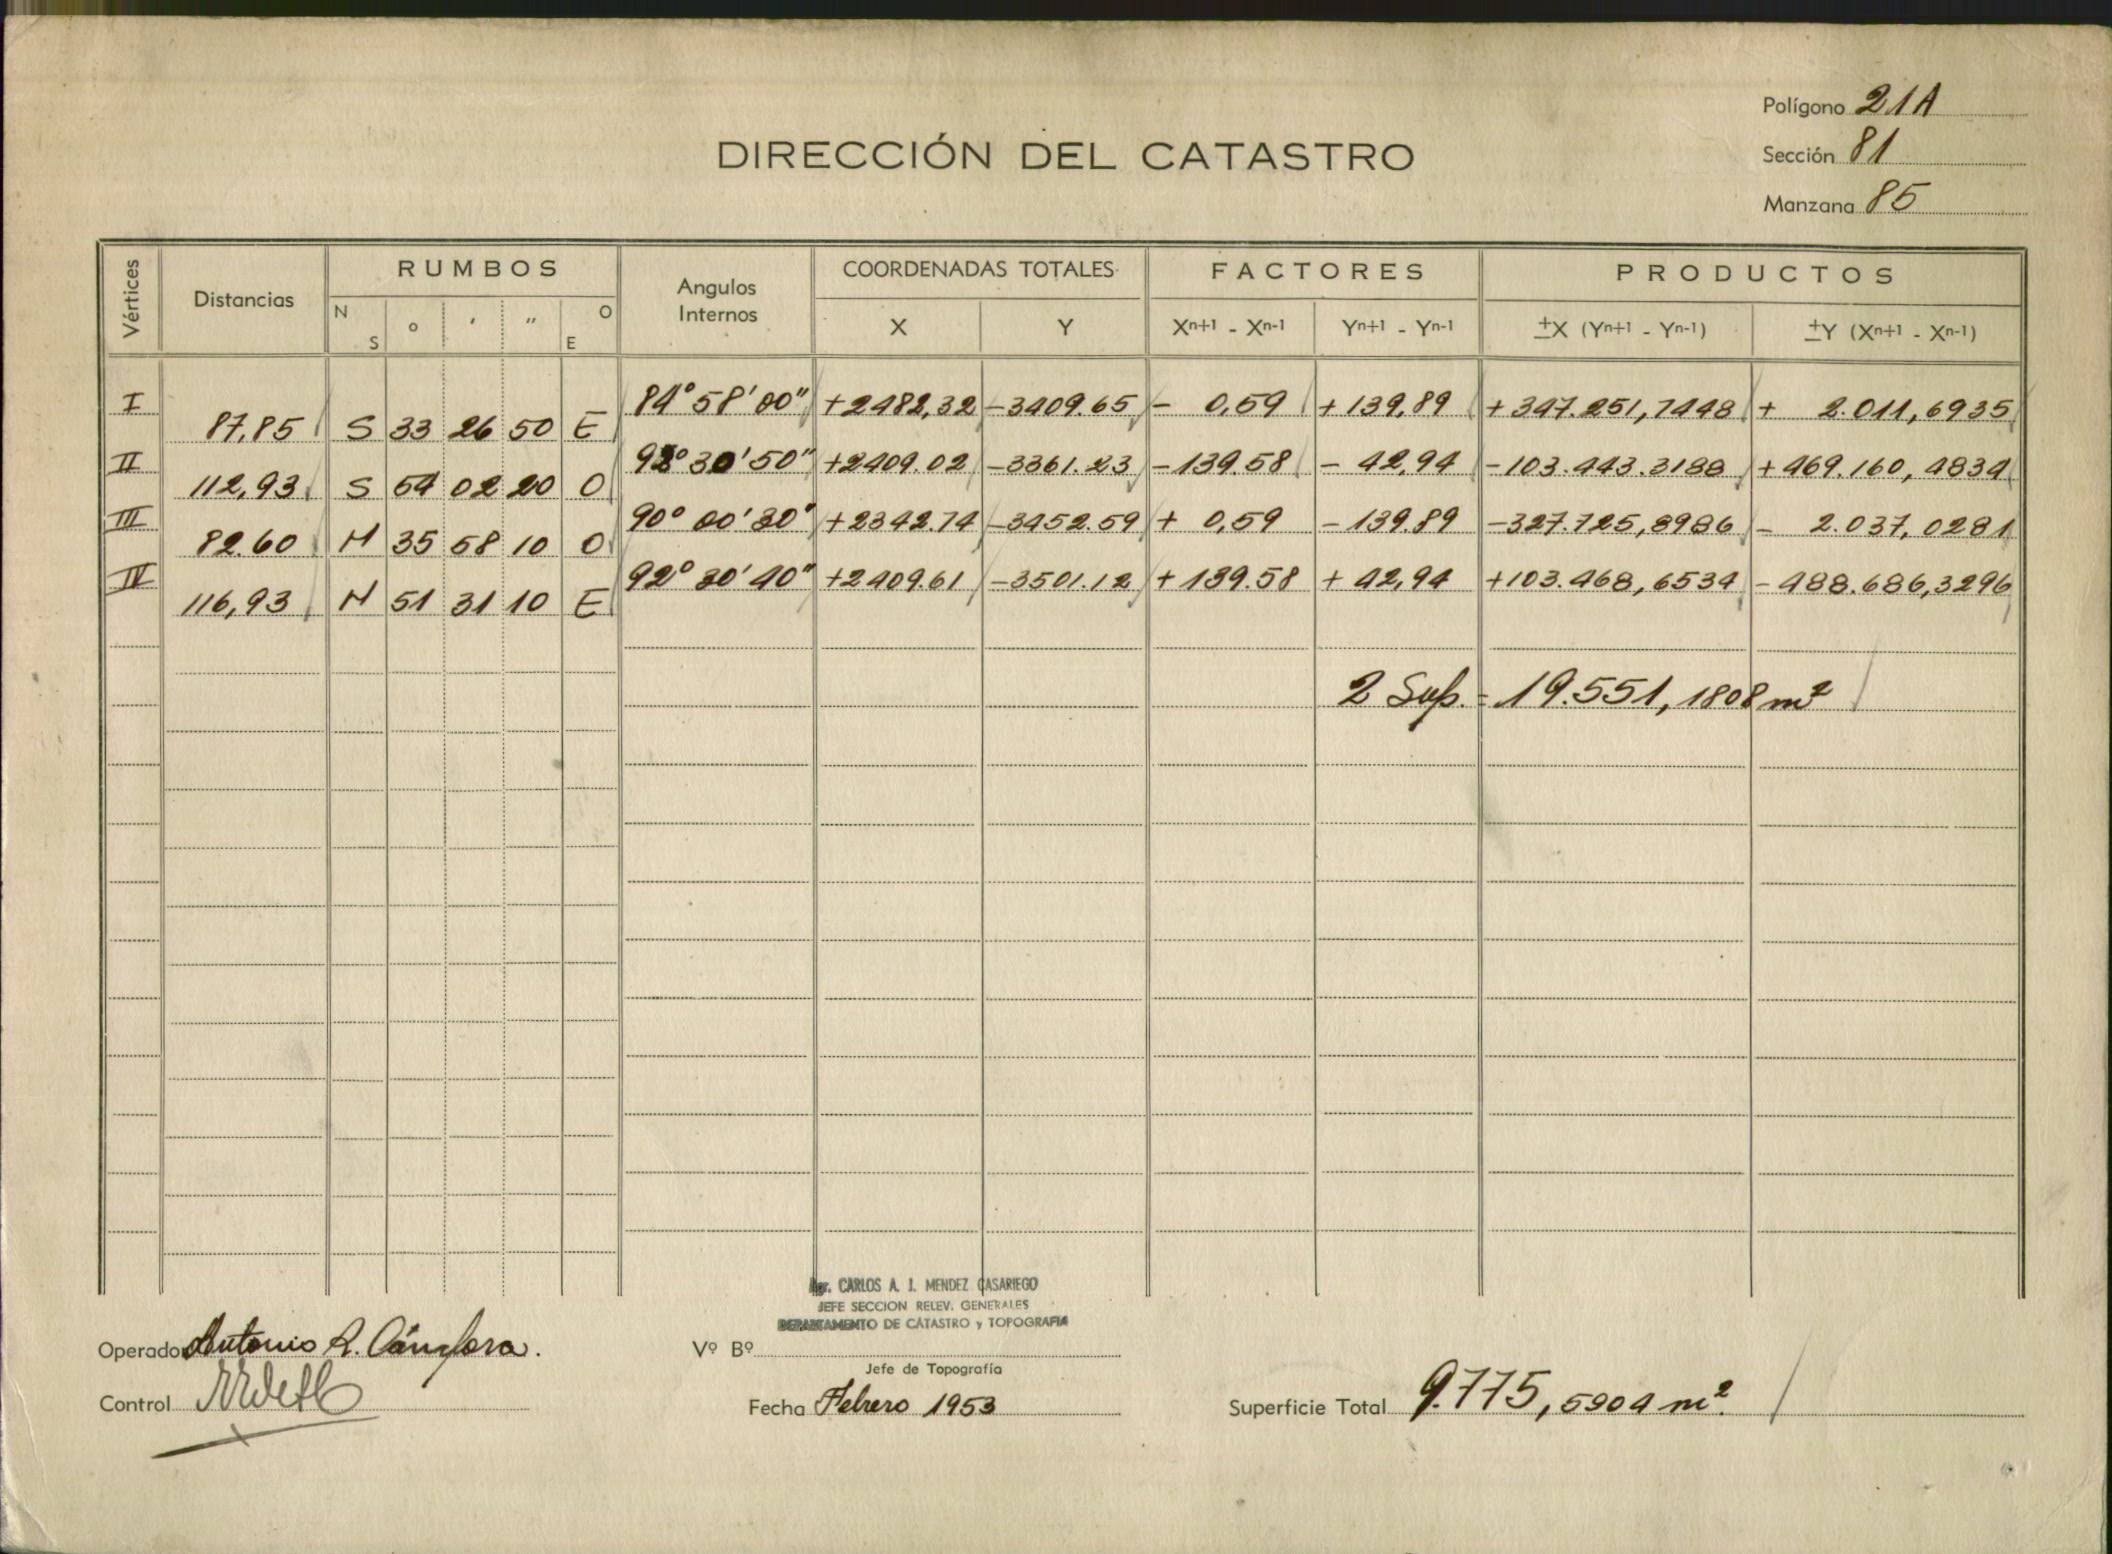 Polígono 21A
DIRECCIÓN DEL CATASTRO
Sección 81
Manzana 85
Vértices Distancias RUMBOS Angulos Internos COORDENADAS TOTALES FACTORES PRODUCTOS
N S ° ' " O E X Y Xn+1 - Xn-1 Yn+1 - Yn-1 ±X (Yn+1 - Yn-1) ±Y (Xn+1 - Xn-1)
I 84°58'00" +2482,32 -3409.65 - 0,59 +139,89 +347.251,7448 + 2.011,6935
87,85 S 33 26 50 E
II 92°30'50" +2409.02 -3361.23 -139.58 - 42,94 -103.443.3188 +469.160,4834
112,93 S 54 02 20 O
III 90°00'30" +2342.74 -3452.59 + 0,59 -139.89 -327.725,8986 - 2.037,0281
82.60 N 35 58 10 O
IV 92°30'40" +2409.61 -3501.12 +139.58 +42,94 +103.468,6534 -488.686,3296
116,93 N 51 31 10 E
2 Sup. = 19.551,1808 m²
Agr. CARLOS A. J. MENDEZ CASARIEGO
JEFE SECCION RELEV. GENERALES
DEPARTAMENTO DE CATASTRO y TOPOGRAFIA
Operador Antonio R.
Vº Bº
Jefe de Topografía
Control
Fecha Febrero 1953
Superficie Total 9.775,5904 m².